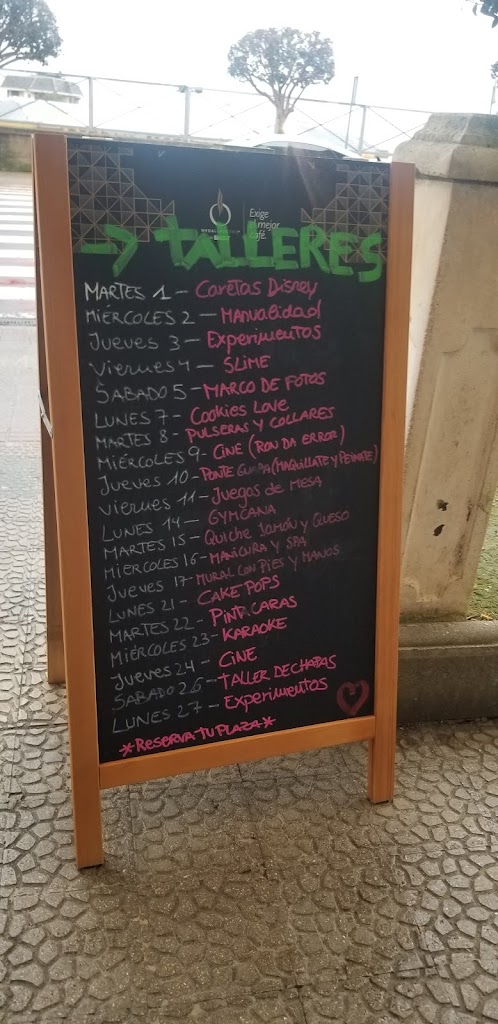 Exige
el mejor
café.
→ TALLERES
MARTES 1 - Caretas Disney
MIÉRCOLES 2 - MANUALIDAD
Jueves 3 - Experimentos
Viernes 4 - SLIME
SABADO 5 - MARCO DE FOTOS
LUNES 7 - Cookies Love
MARTES 8 - PULSERAS Y COLLARES
MIÉRCOLES 9 - CINE (RON DA ERROR)
Jueves 10 - PONTE GUAPA (MAQUILLATE Y PEINATE)
Viernes 11 - Juegos de MESA
LUNES 14 - GYMCANA
MARTES 15 - Quiche Jamón y Queso
MIÉRCOLES 16 - MANICURA Y SPA
Jueves 17 - MURAL CON PIES Y MANOS
LUNES 21 - CAKE POPS
MARTES 22 - PINTA CARAS
MIÉRCOLES 23 - KARAOKE
Jueves 24 - CINE
SABADO 26 - TALLER DE CHAPAS
LUNES 27 - Experimentos
*RESERVA TU PLAZA*